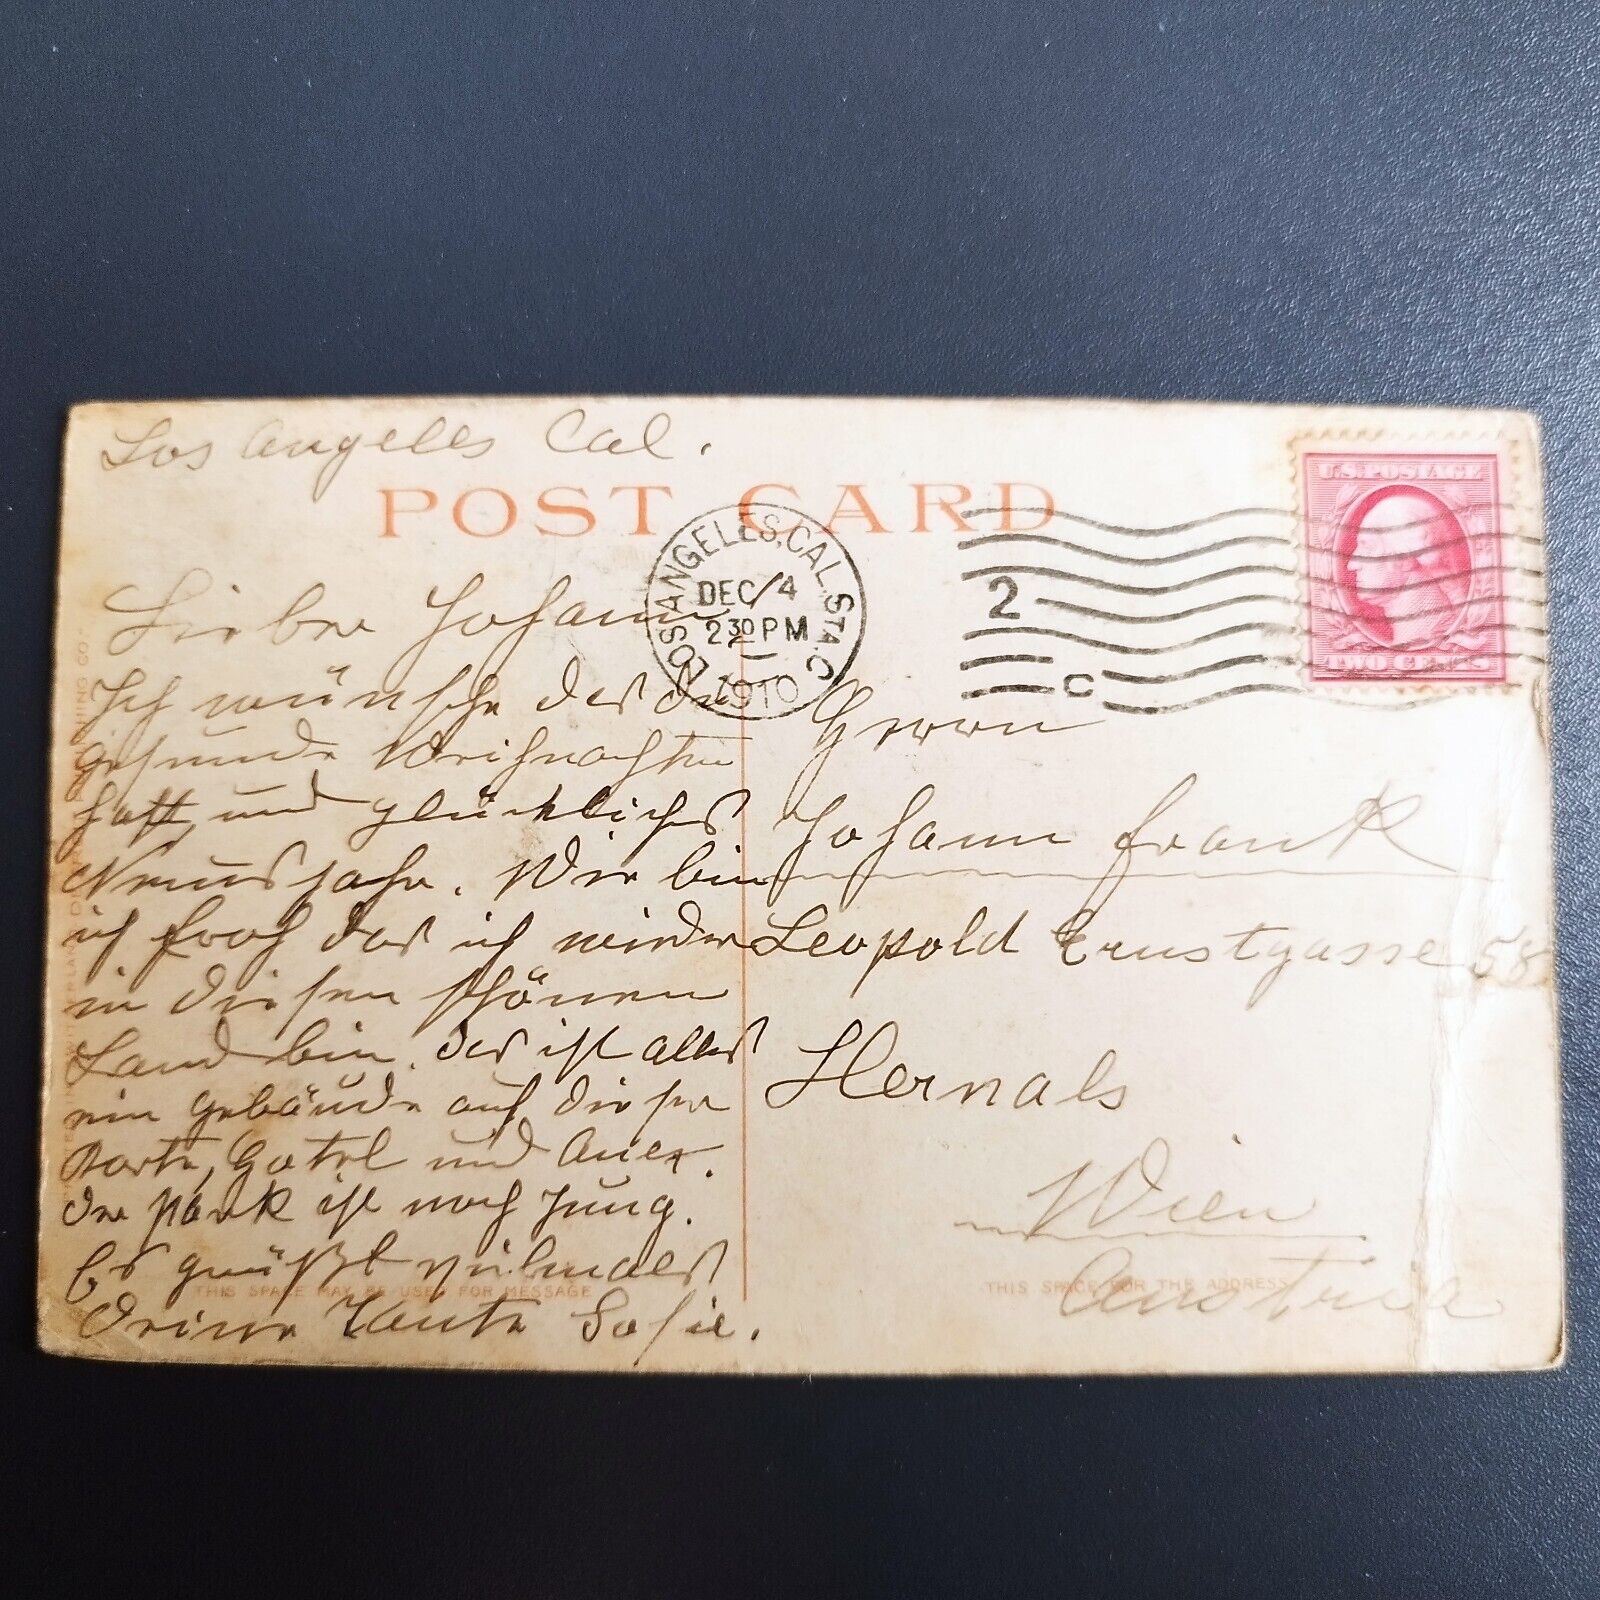 Los Angeles Cal.
POST CARD
LOS ANGELES, CAL. STA. C
DEC 4
2 30 PM
1910
2
C
U.S. POSTAGE
TWO CENTS
Lieber Johann
Ich wünsche das du
gesunde Weihnachten
hast, und glückliches
Neues Jahr. Wir bin
ich froh das ich wieder
in diesen schönen
Land bin. das ist alles
ein gebäude auf dieser
Karte, Hotel und
der park ist noch jung.
Es grüßt vielmals
Deine Tante Sofie.
THIS SPACE MAY BE USED FOR MESSAGE
Herrn
Johann Frank
Leopold Ernstgasse 58
Hernals
Wien
Austria
THIS SPACE FOR THE ADDRESS